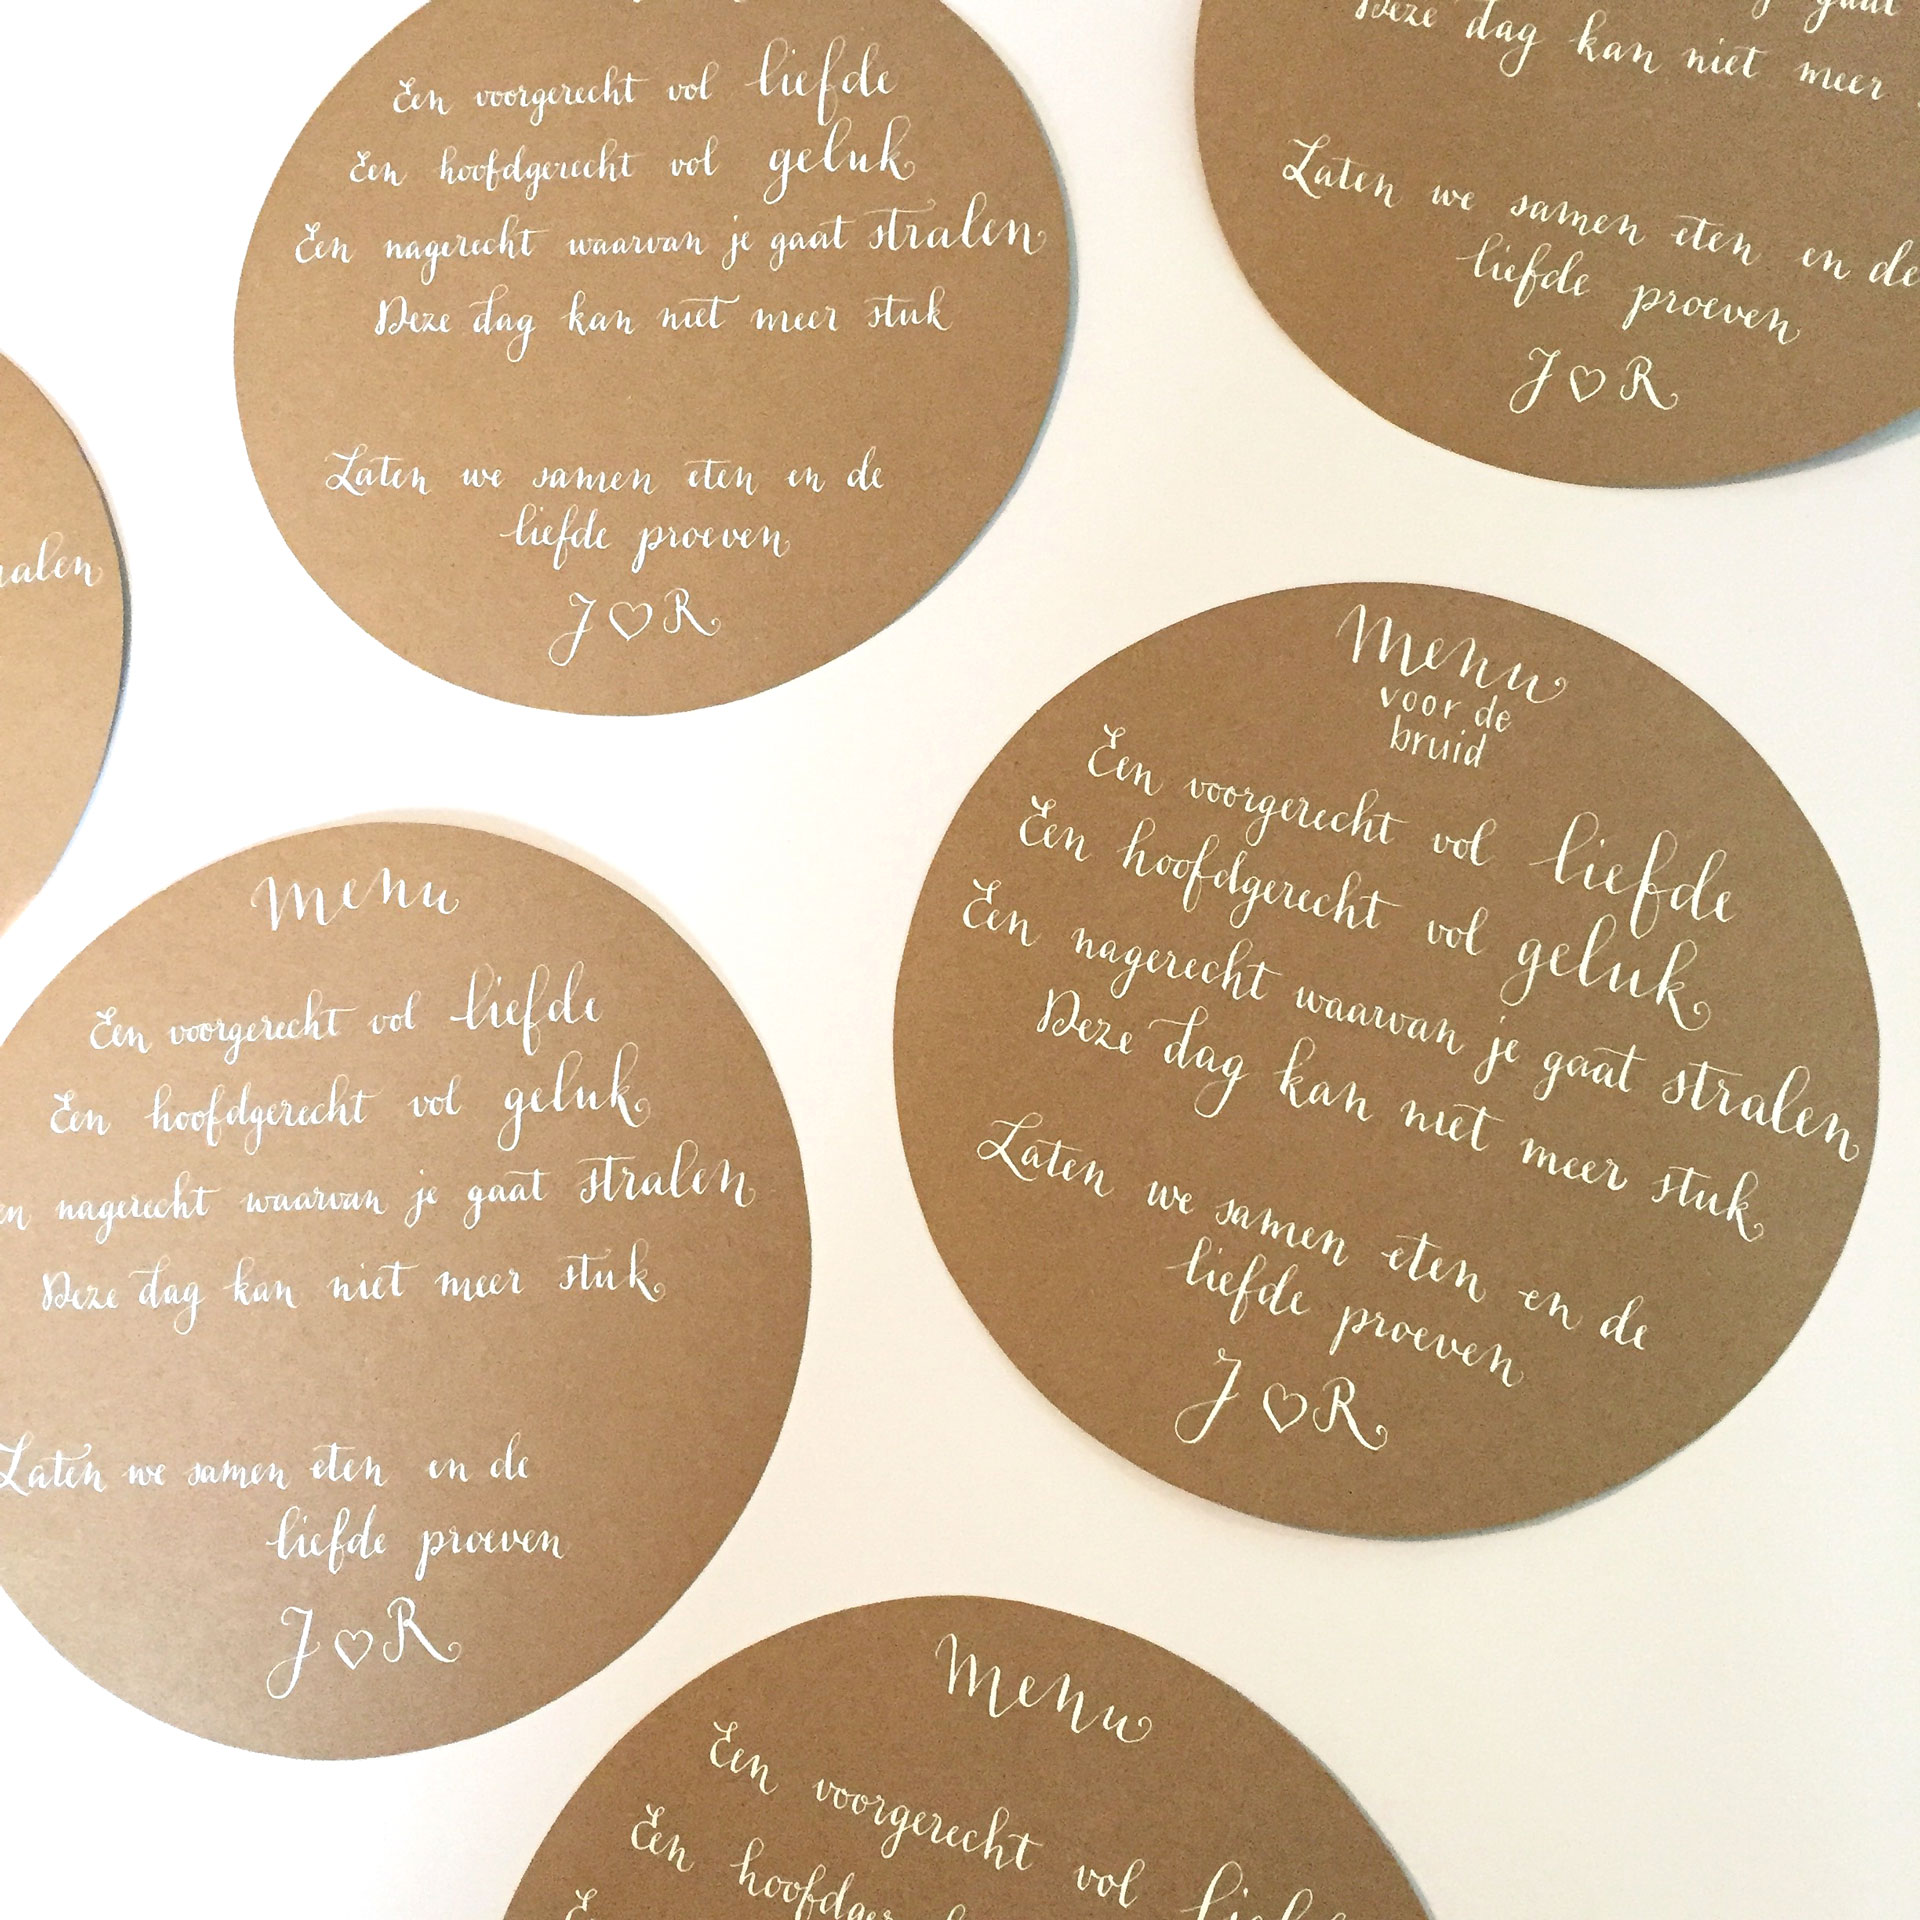 Een voorgerecht vol liefde
Een hoofdgerecht vol geluk
Een nagerecht waarvan je gaat stralen
Deze dag kan niet meer stuk
Laten we samen eten en de
liefde proeven
J ♡ R
gaat
Deze dag kan niet meer
Laten we samen eten en de
liefde proeven
J ♡ R
ralen
Menu
voor de
bruid
Een voorgerecht vol liefde
Een hoofdgerecht vol geluk
Een nagerecht waarvan je gaat stralen
Deze dag kan niet meer stuk
Laten we samen eten en de
liefde proeven
J ♡ R
Menu
Een voorgerecht vol liefde
Een hoofdgerecht vol geluk
en nagerecht waarvan je gaat stralen
Deze dag kan niet meer stuk
Laten we samen eten en de
liefde proeven
J ♡ R
Menu
Een voorgerecht vol
Een